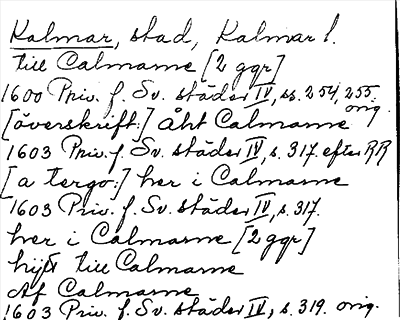 Kalmar, stad, Kalmar l.
till Calmarne [2 ggr]
1600 Priv. f. Sv. städer IV, ss. 254, 255. orig.
[överskrift:] åht Calmarne
1603 Priv. f. Sv. städer IV, s. 317. efter RR
[a tergo:] her i Calmarne
1603 Priv. f. Sv. städer IV, s. 317.
her i Calmarne [2 ggr]
hijtt till Calmarne
Af Calmarne
1603 Priv. f. Sv. städer IV, s. 319. orig.